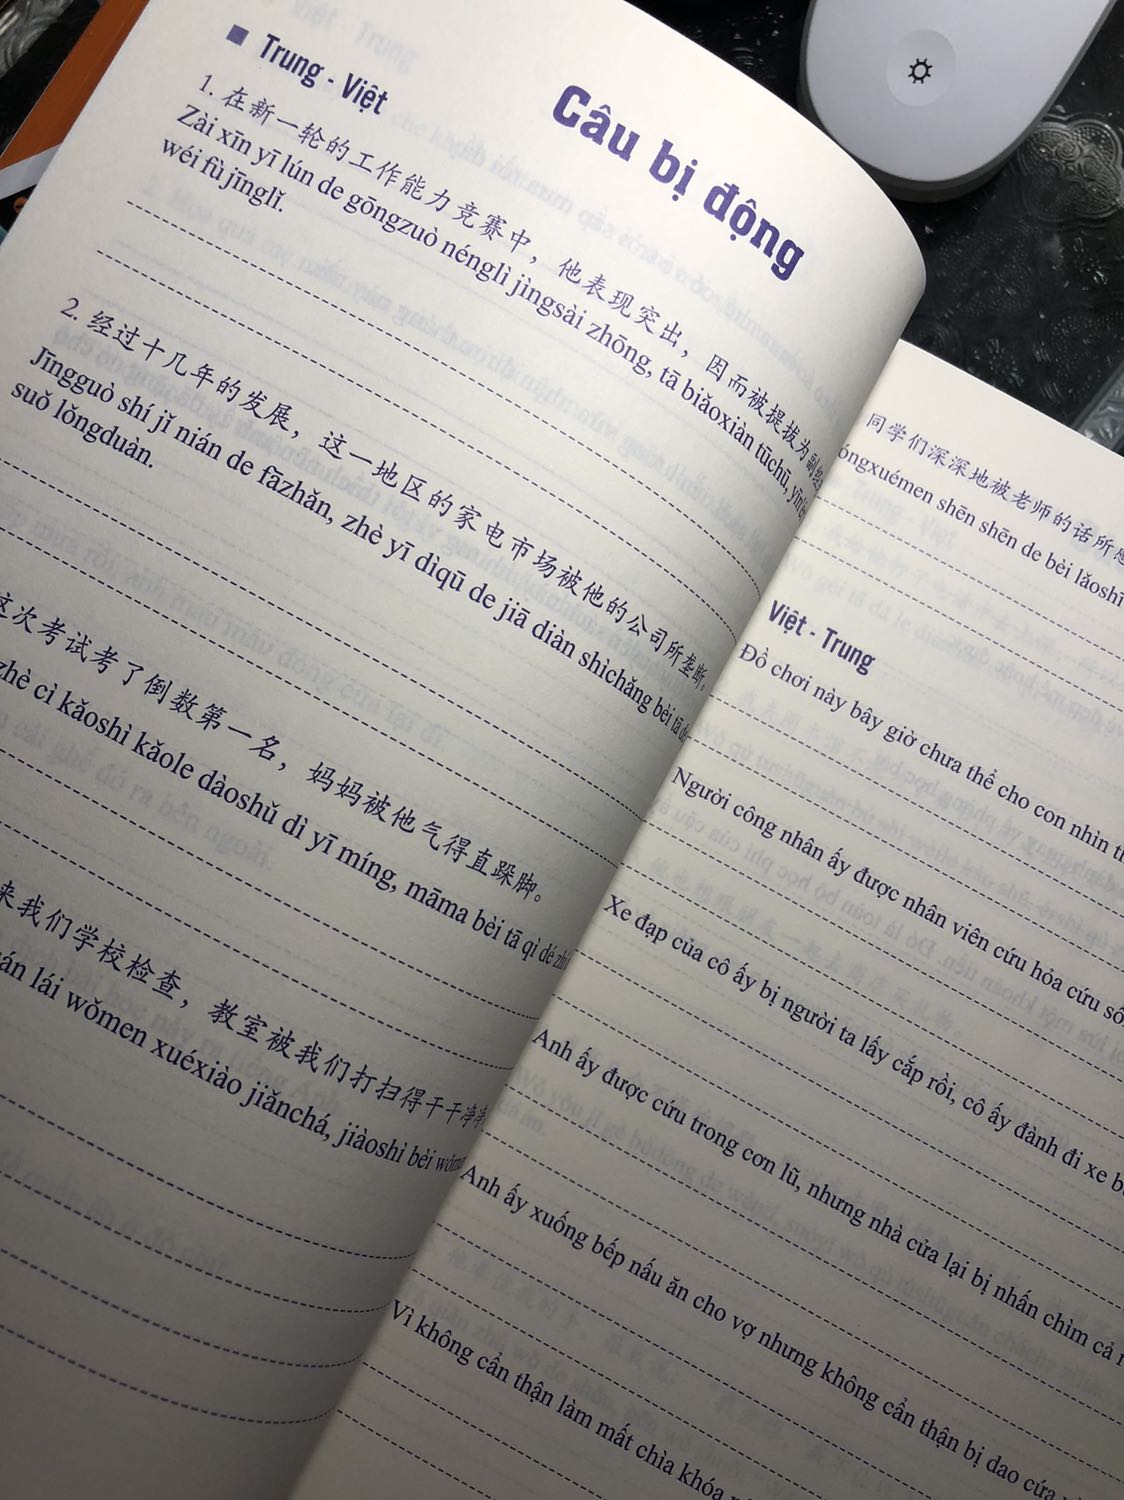 Câu bị động
Trung - Việt
1. 在新一轮的工作能力竞赛中，他表现突出，因而被提拔为副
Zài xīn yī lún de gōngzuò nénglì jìngsài zhōng, tā biǎoxiàn tūchū,
wéi fù jīnglǐ.
2. 经过十几年的发展，这一地区的家电市场被他的公司所垄断。
Jīngguò shí jǐ nián de fāzhǎn, zhè yī dìqū de jiā diàn shìchǎng bèi tā
suǒ lǒngduàn.
这次考试考了倒数第一名，妈妈被他气得直跺脚。
zhè cì kǎoshì kǎole dàoshǔ dì yī míng, māma bèi tā qì dé
来我们学校检查，教室被我们打扫得干干净
lái wǒmen xuéxiào jiǎnchá, jiàoshì bèi
同学们深深地被老师的话所
shēn shēn de bèi lǎoshī
Việt - Trung
Đồ chơi này bây giờ chưa thể cho con nhìn
Người công nhân ấy được nhân viên cứu hỏa cứu
Xe đạp của cô ấy bị người ta lấy cắp rồi, cô ấy đành đi xe
Anh ấy được cứu trong cơn lũ, nhưng nhà cửa lại bị nhấn chìm cả
Anh ấy xuống bếp nấu ăn cho vợ nhưng không cẩn thận bị dao cứa
Vì không cẩn thận làm mất chìa khóa